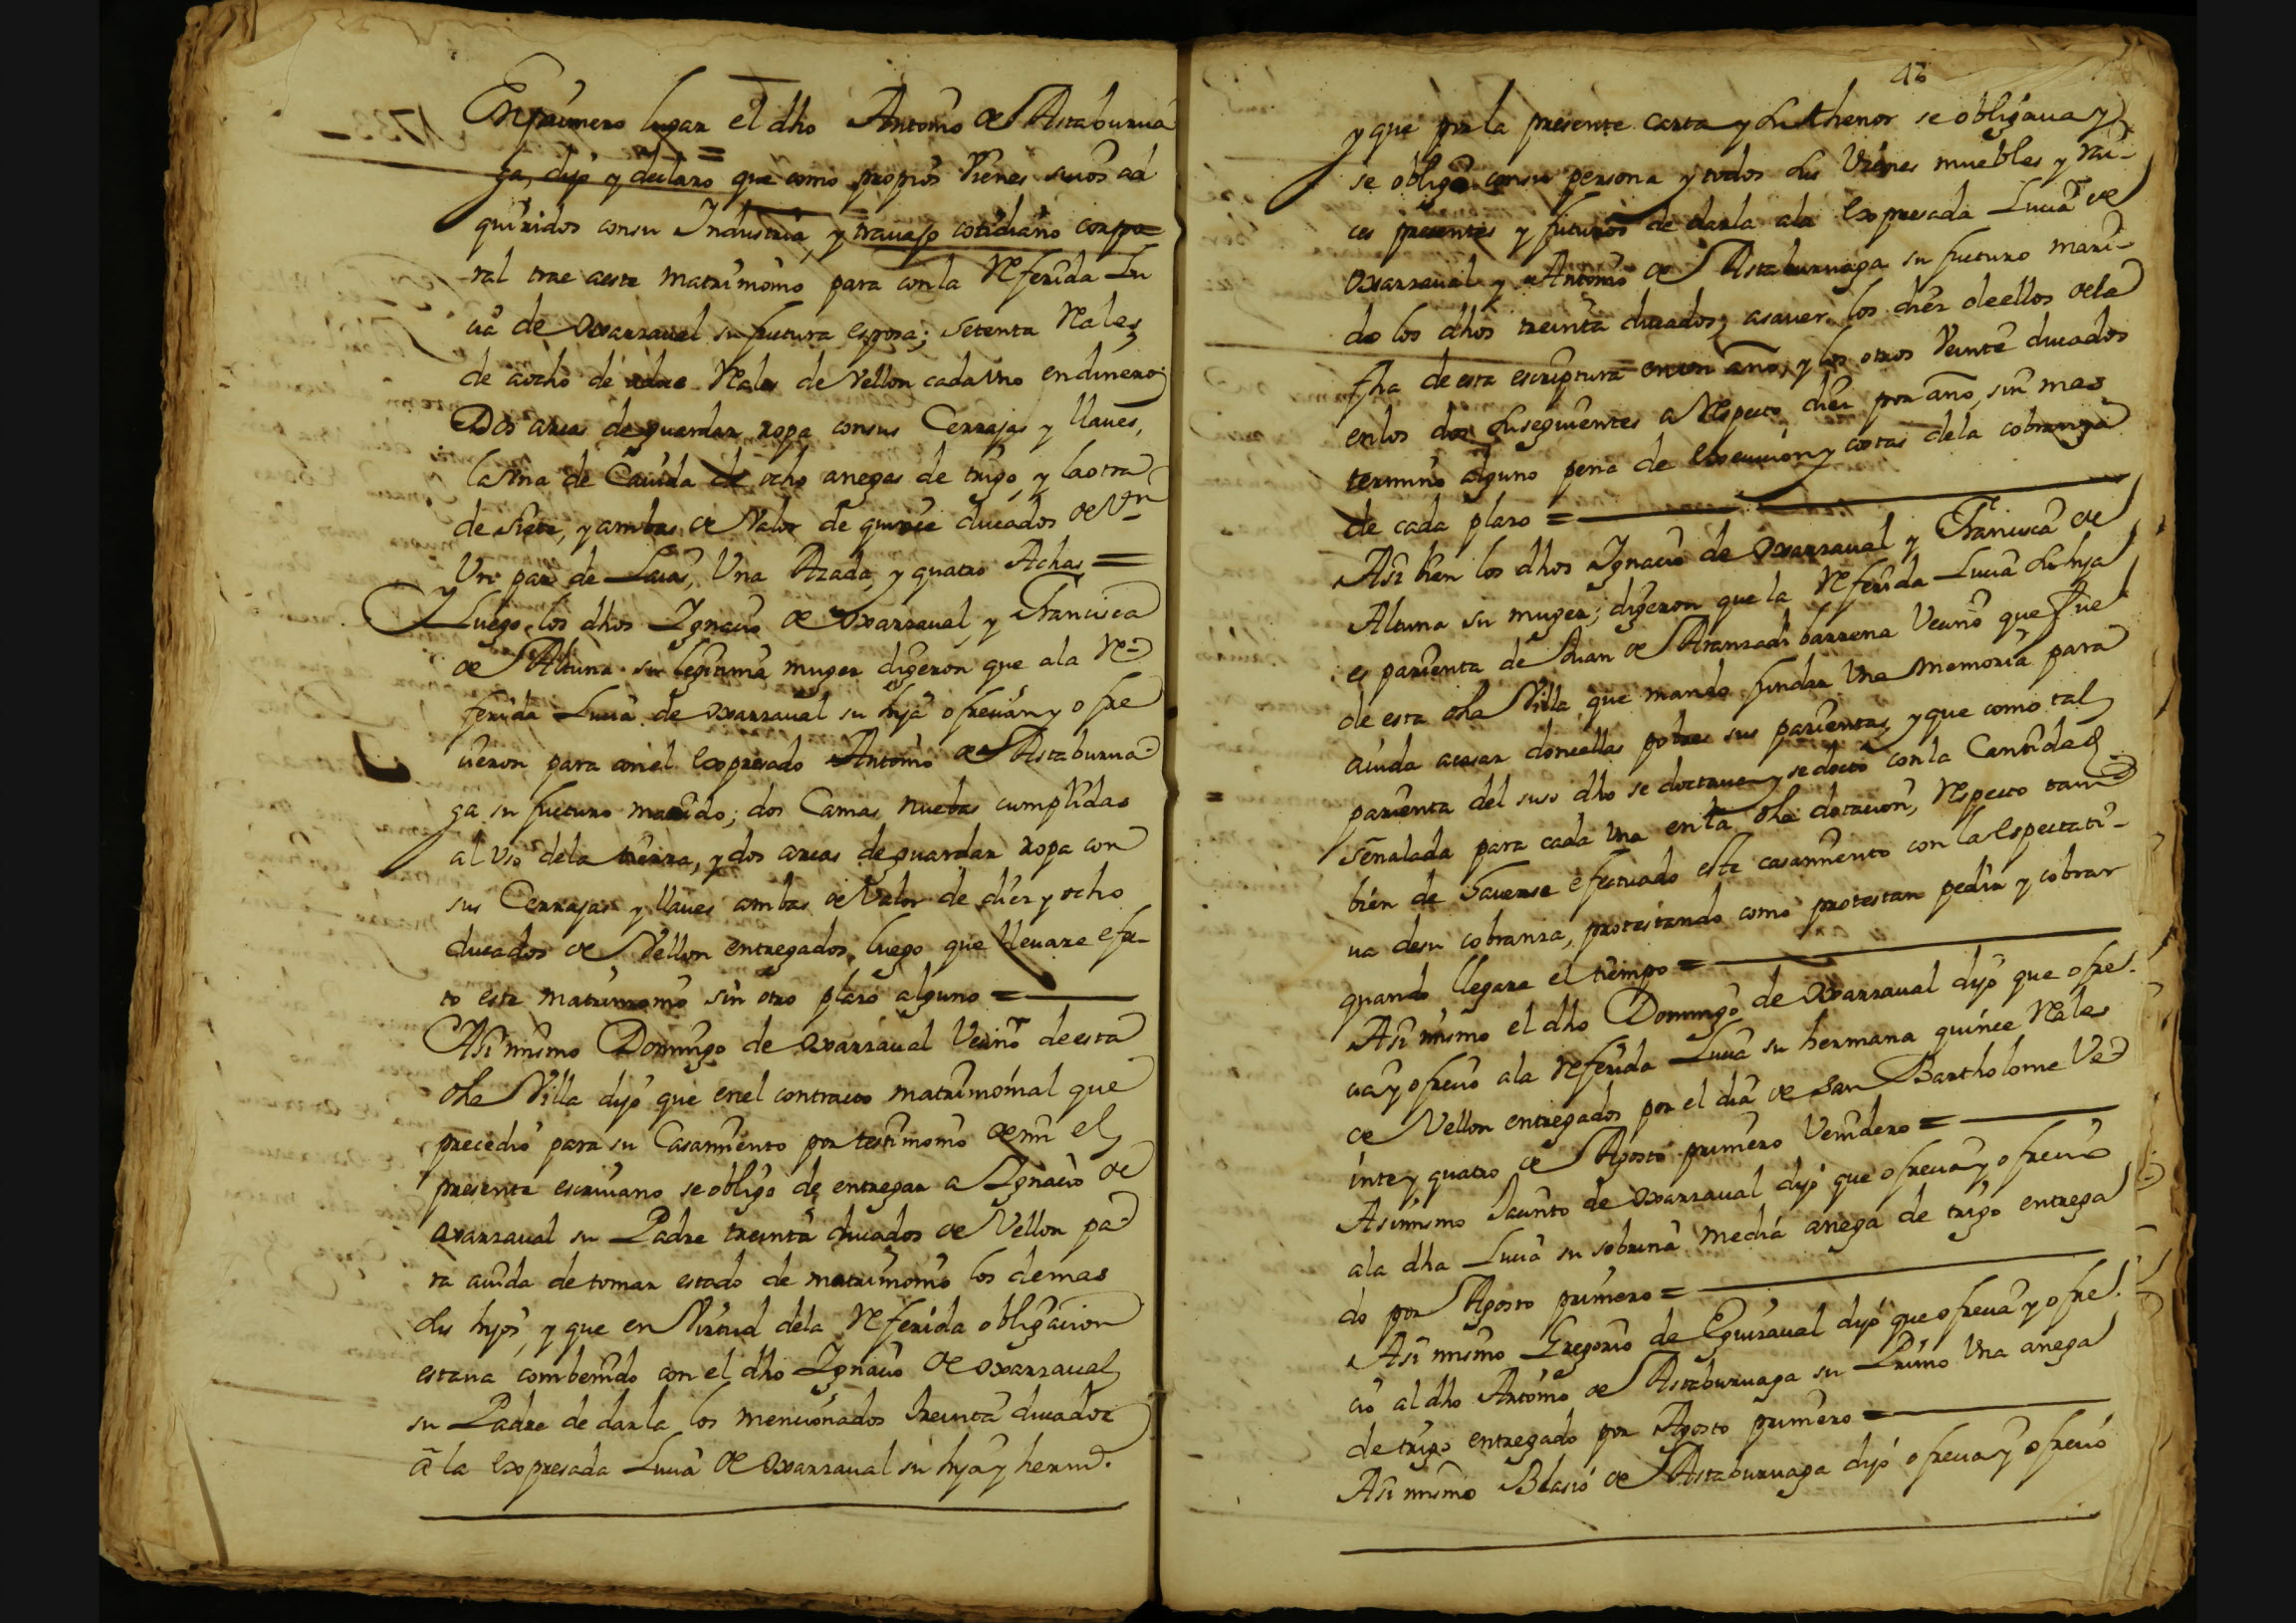 En primero lugar el dho Antonio de Astaburua
ga, dijo y declaro que como propios vienes suios ad
quiridos con su Industria, y trauajo cotidiano corpo=
ral trae a este matrimonio para con la Referida Lu
cia de Oxarraual su futura esposa; setenta Rales
de aocho de Rales de Vellon cada vno en dinero;
Dos arcas de guardar ropa con sus Cerrajas y llaues,
la Vna de Cauida de ocho anegas de trigo, y la otra
de siete, y ambas de Valor de quince ducados de Vn
Un par de Laias, Una Azada, y quatro Achas =
Y Luego los dhos Ignacio de Oxarraual, y Francisca
de Altuna su legitima muger digeron que a la Re
ferida Lucia de Oxarraual su hija ofrecian y ofre
cieron para con el Expresado Antonio de Astaburua
ga su futuro marido; dos Camas nuebas cumplidas
al vso de la tierra, y dos arcas de guardar ropa con
sus Cerrajas y llaues ambas de Valor de diez y ocho
ducados de Vellon entregados luego que lleuare efe-
to este matrimonio sin otro plazo alguno =
Asi mismo Domingo de Oxarraual Vecino de esta
dha Villa dijo que en el contracto matrimonial que
precedio para su Casamiento por testimonio de mi el
presente escriuano se obligo de entregar a Ignacio de
Oxarraual su Padre treinta ducados de Vellon pa
ra aiuda de tomar estado de matrimonio los demas
sus hijos, y que en Virtud de la Referida obligacion
estaua combenido con el dho Ignacio de Oxarraual
su Padre de darla los mencionados treinta ducados
a la Expresada Lucia de Oxarraual su hija y herm.
46
y que por la presente carta y su thenor se obligaua y
se obligo con su persona y todos sus Vienes muebles y rai-
ces presentes y futuros de darla a la Expresada Lucia de
Oxarraual y Antonio de Astaburuaga su futuro mari-
do los dhos treinta ducados; asauer los diez de ellos de la
fha de esta escriptura en vn año, y los otros Veinte ducados
en los dos suseguientes a Respecto diez por año, sin mas
termino alguno pena de Execucion y costas de la cobranza
de cada plazo =
Asi bien los dhos Ignacio de Oxarraual y Francisca de
Altuna su muger; digeron que la Referida Lucia su hija
es parienta de Juan de Aranzadi barrena Vecino que fue
de esta dha Villa que mando fundar Vna Memoria para
aiuda acasar doncellas pobres sus parientas, y que como tal
parienta del suso dho se doctaua y se docto con la Cantidad
señalada para cada Vna en la dha dotacion, Respecto tam
bien de hauerse efectuado este casamiento con la Espectati-
ua de su cobranza, protestando como protestan pedir y cobrar
quando llegare el tiempo =
Asi mismo el dho Domingo de Oxarraual dijo que ofre-
cia y ofrecio a la Referida Lucia su hermana quince Rales
de Vellon entregados por el dia de San Bartholome Ve
inte y quatro de Agosto primero Venidero =
Asimismo Jacinto de Oxarraual dijo que ofrecia y ofrecio
a la dha Lucia su sobrina media anega de trigo entrega
do por Agosto primero =
Asi mismo Gregorio de Eguiraual dijo que ofrecia y ofre
cio al dho Antonio de Astaburuaga su Primo Una anega
de trigo entregado por Agosto primero =
Asi mismo Blasio de Astaburuaga dijo ofrecia y ofrecio